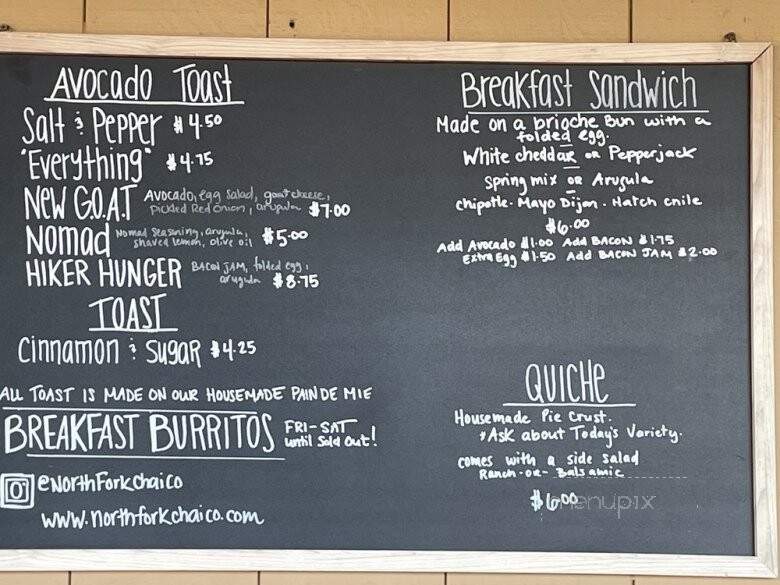 AVOCADO TOAST
Salt & Pepper $4.50
"Everything" $4.75
NEW G.O.A.T Avocado, egg salad, goat cheese,
pickled Red onion, arugula $7.00
NOMAD Nomad Seasoning, arugula,
shaved lemon, olive oil $5.00
HIKER HUNGER BACON JAM, folded egg,
arugula $8.75
TOAST
Cinnamon & Sugar $4.25
ALL TOAST IS MADE ON OUR HOUSEMADE PAIN DE MIE
BREAKFAST BURRITOS FRI-SAT
until Sold Out!
@NorthForkchaico
www.northforkchaico.com
Breakfast Sandwich
Made on a brioche Bun with a
folded egg.
White cheddar or Pepperjack
spring mix or Arugula
chipotle. Mayo Dijon. Hatch chile
$6.00
Add Avocado $1.00 Add BACON $1.75
Extra Egg $1.50 Add BACON JAM $2.00
QUICHE
Housemade Pie Crust.
*Ask about Today's Variety.
comes with a side salad
Ranch -or- Balsamic
$6.00
menupix